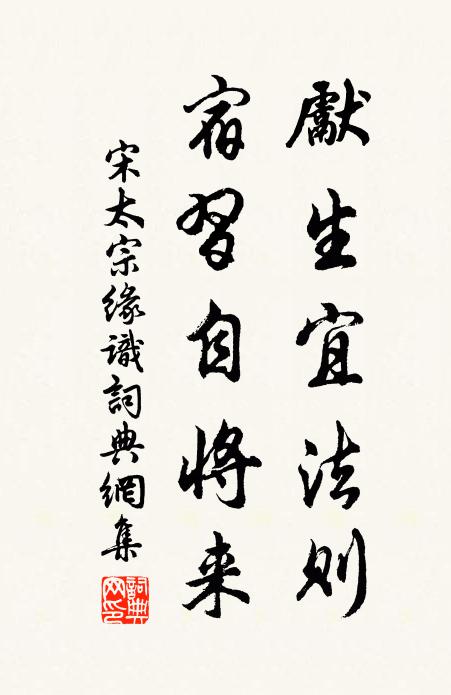 獻生宜法則
宿習自將来
宋太宗緣識詞典網集
詞典网印